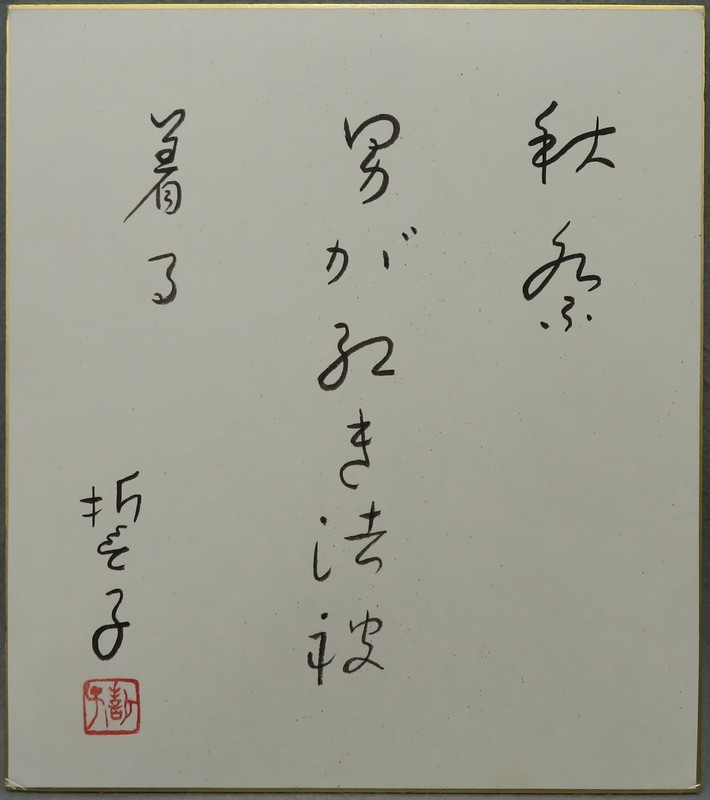 秋祭
男が紅き法被
着る
誓子